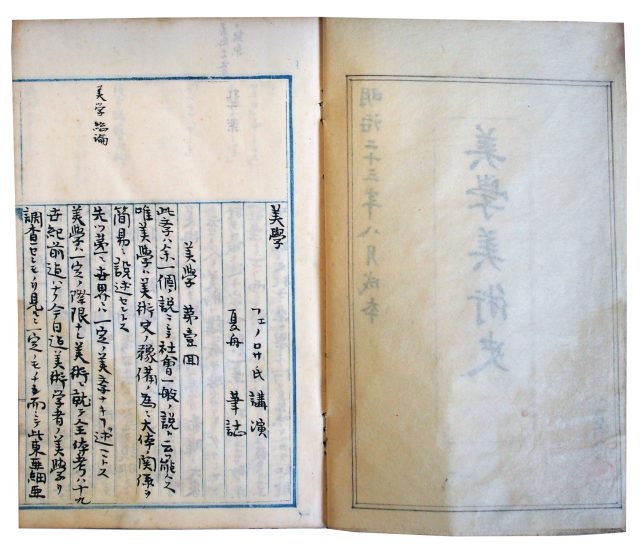 美學美術史
明治二十三年八月成本
美学總論
美學
フェノロサ氏 講演
夏舟 筆誌
美學 第壹回
此学ハ余一個ノ説ニシテ社會一般ノ説ト云能ハス
唯美学ハ美術史ノ豫備ノ為ニ大体ノ関係ヲ
簡易ニ説述セントス
先ツ第一ニ世界ニハ一定ノ美学ナキヿヲ述ヘントス
美學ニ一定ノ際限ナシ美術ニ就テ全体考ハ十九
世紀前迄ハナク今日迄美術学者ノ美學ヲ
調査セシモノヲ見ルニ一定ノモノナシ而シテ此東亜細亜